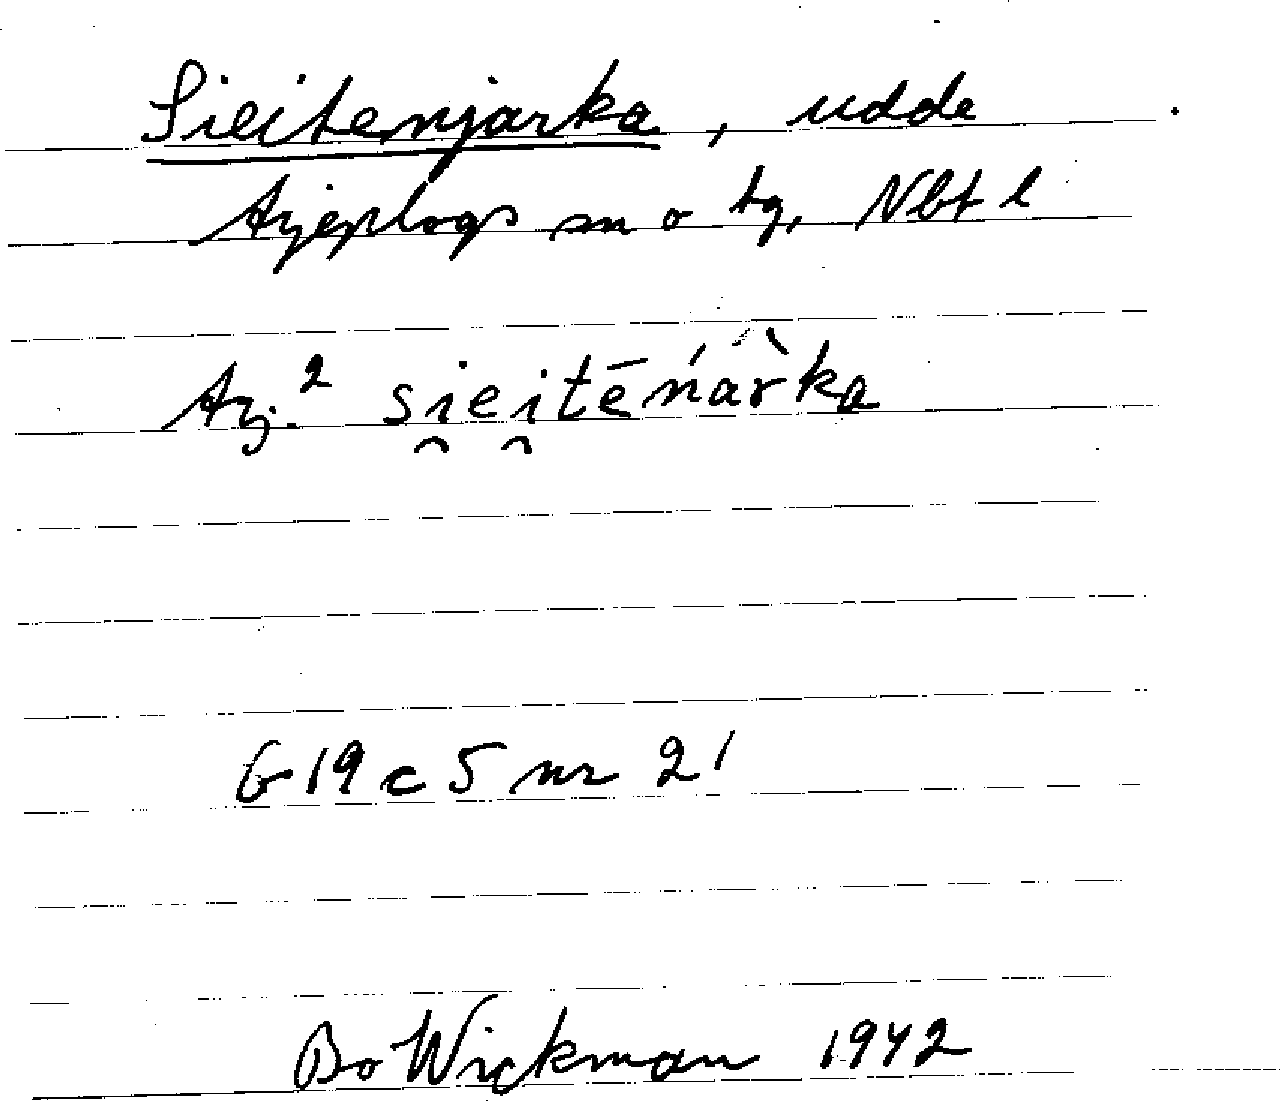 Sieitenjarka, udde
Arjeplogs sn o tg, Nbt l
Arj.² si̯ei̯tēńàr̆ka
G 19 c 5 nr 21
Bo Wickman 1942